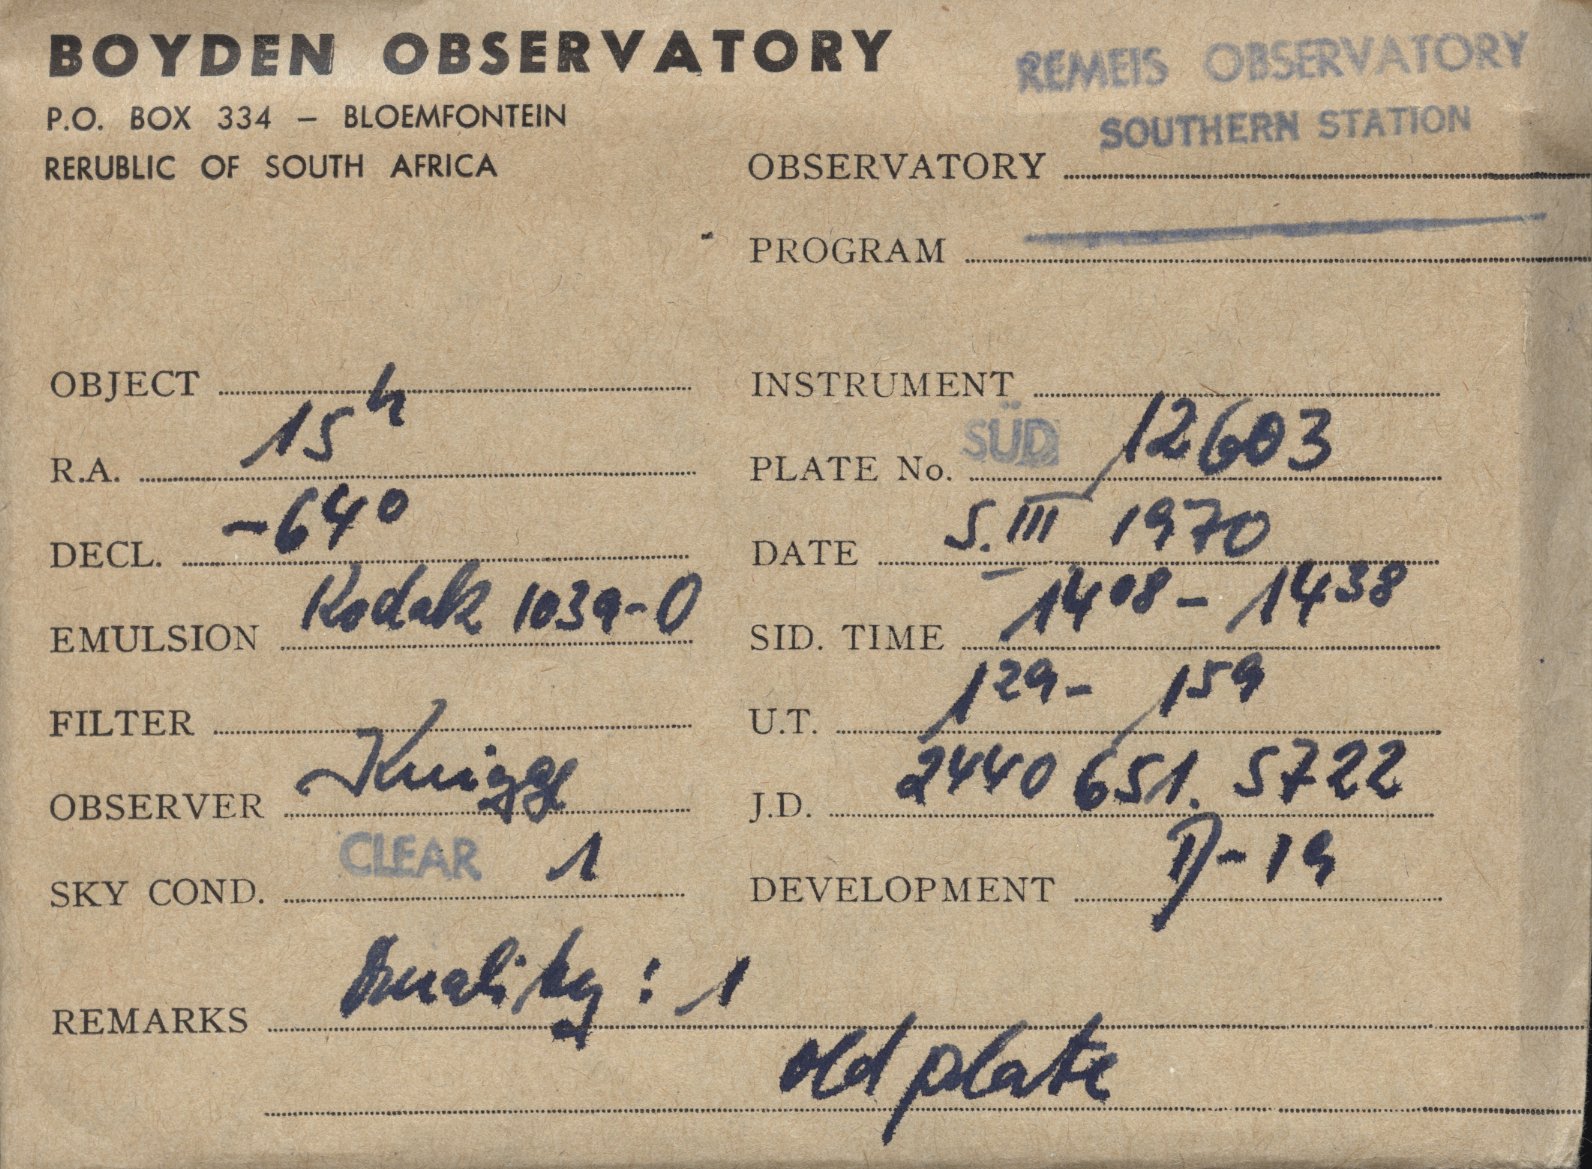 BOYDEN OBSERVATORY
P.O. BOX 334 – BLOEMFONTEIN
RERUBLIC OF SOUTH AFRICA
REMEIS OBSERVATORY
SOUTHERN STATION
OBSERVATORY
PROGRAM
OBJECT
R.A. 15h
DECL. -64°
EMULSION Kodak 103a-O
FILTER
OBSERVER Knigge
SKY COND. CLEAR 1
INSTRUMENT
PLATE No. SÜD 12603
DATE 5. III 1970
SID. TIME 14 08 - 14 38
U.T. 1 29 - 1 59
J.D. 2440 651. 5722
DEVELOPMENT D-19
REMARKS Quality : 1
old plate